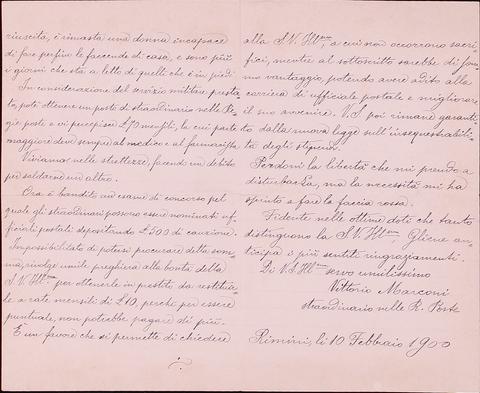 riuscita, è rimasta una donna incapace
di fare perfino le faccende di casa, e sono più
i giorni che sta a letto di quelli che è in piedi.
In considerazione del servizio militare presta-
to, poté ottenere un posto di straordinario nelle Re-
gie poste e vi percepisce £70 mensili, la cui parte
maggiore deve sempre al medico e al farmacista.
Viviamo nelle strettezze, facendo un debito
per saldarne un altro.
Ora è bandito un esame di concorso pel
quale gli straordinari possono essere nominati uf-
ficiali postali depositando £300 di cauzione.
Impossibilitato di potersi procurare detta som-
ma, rivolge umile preghiera alla bontà della
S. V. Ill.ma per ottenerle in prestito da restituir-
le a rate mensili di £10, perché per essere
puntuale, non potrebbe pagare di più.
È un favore che si permette di chiedere
alla S. V. Ill.ma, a cui non occorrono sacri-
fici, mentre al sottoscritto sarebbe di som-
mo vantaggio, potendo avere adito alla
carriera di ufficiale postale e migliorare
il suo avvenire. V. S. poi rimane garanti-
ta dalla nuova legge sull'insequestrabili-
tà degli stipendi.
Perdoni la libertà che mi prendo a
disturbarla, ma la necessità mi ha
spinto a fare la faccia rossa.
Fidente nelle ottime doti che tanto
distinguono la S. V. Ill.ma Gliene an-
ticipa i più sentiti ringraziamenti.
Di V. S. Ill.ma servo umilissimo
Vittorio Marconi
straordinario nelle R. Poste
Rimini, li 10 Febbraio 1900